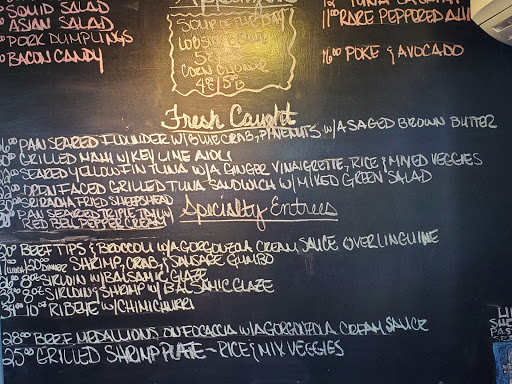 SQUID SALAD
ASIAN SALAD
PORK DUMPLINGS
BACON CANDY
Appetizers
SOUP OF THE DAY
LOBSTER
CORN CHOWDER
4C 15 B
12 TUNA
11 RARE PEPPERED AHI
16.00 POKE & AVOCADO
Fresh Caught
PAN SEARED FLOUNDER W/ BLUE CRAB, PINENUTS W/ A SAGED BROWN BUTTER
GRILLED MAHI W/ KEY LIME AIOLI
SEARED YELLOWFIN TUNA W/ A GINGER VINAIGRETTE, RICE & MIXED VEGGIES
22.00 OPEN FACED GRILLED TUNA SANDWICH W/ MIXED GREEN SALAD
30.00 SRIRACHA FRIED SHEEPSHEAD
PAN SEARED TRIPLE TAIL W/
RED BELL PEPPER CREAM
Specialty Entrees
BEEF TIPS & BROCCOLI W/ A GORGONZOLA CREAM SAUCE OVER LINGUINE
DINNER SHRIMP, CRAB & SAUSAGE GUMBO
8oz SIRLOIN W/ BALSAMIC GLAZE
8oz SIRLOIN & SHRIMP W/ BALSAMIC GLAZE
10oz RIBEYE W/ CHIMICHURRI
28.00 BEEF MEDALLIONS ON FOCACCIA W/ A GORGONZOLA CREAM SAUCE
25.00 GRILLED SHRIMP PLATE - RICE & MIX VEGGIES